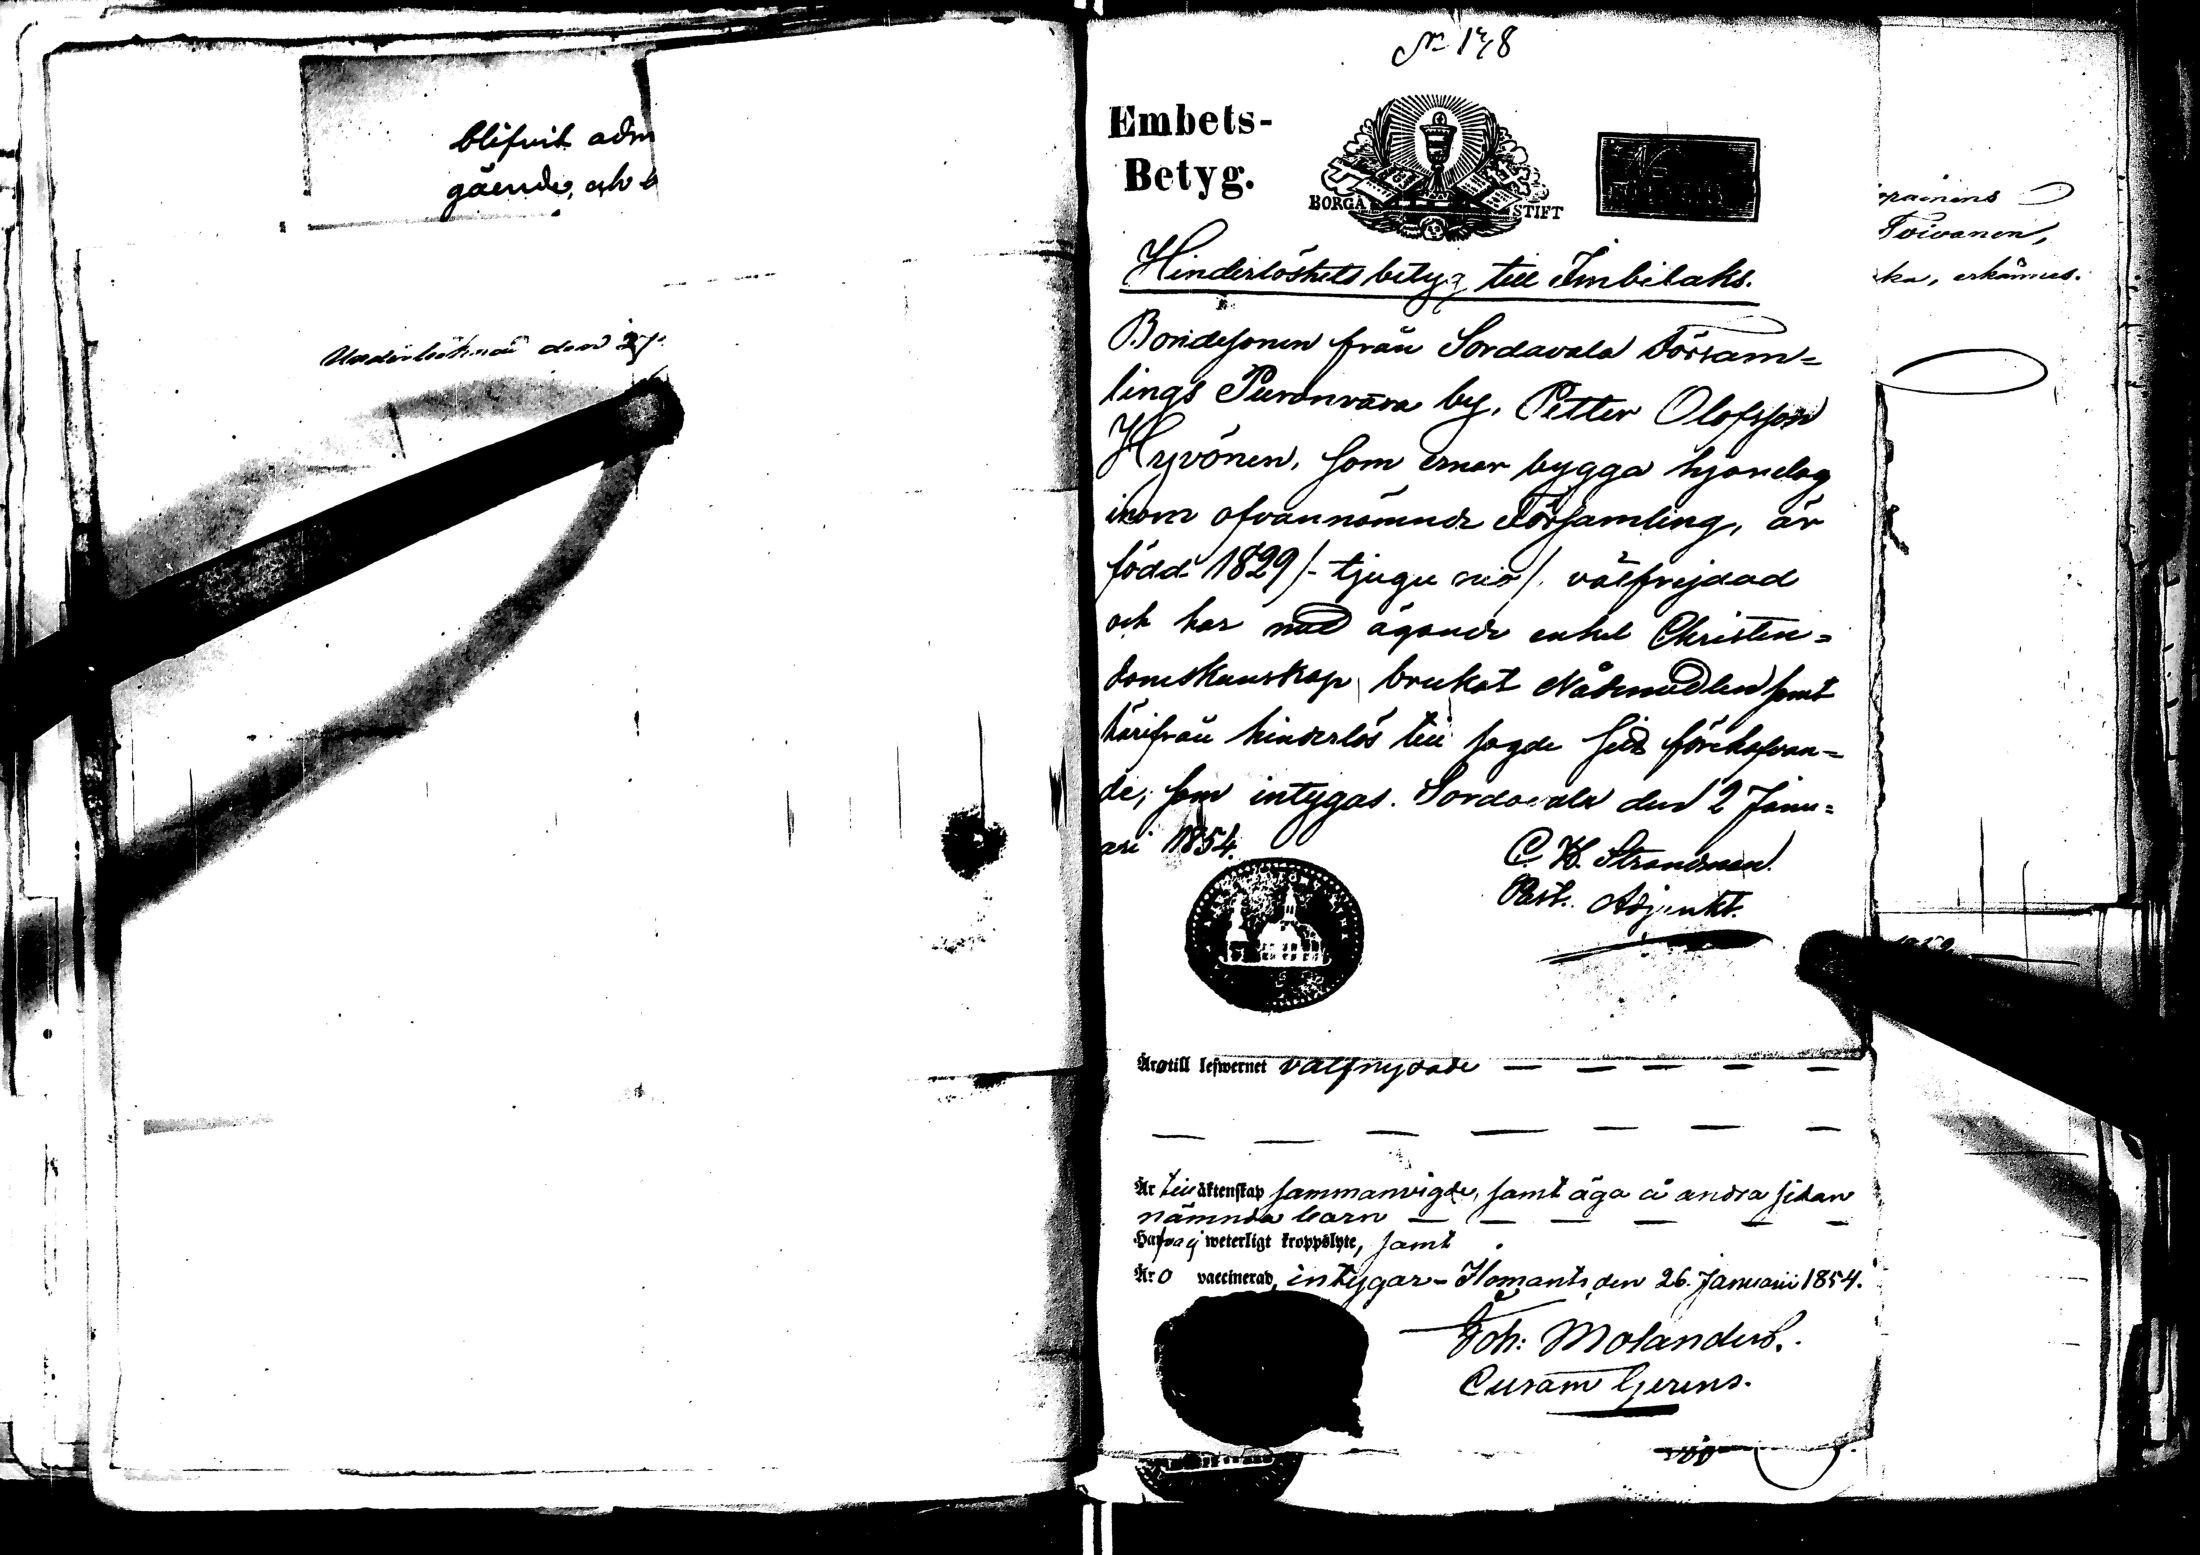 blifvit adm
gående, och b
Underteknad den 27
No 178
Embets-
Betyg.
BORGÅ STIFT
Hinderlöshets betyg till Imbilaks.
Bondesonen från Sordavala Försam=
lings Puronvara by, Petter Olofsson
Hyvönen, som ernar bygga hjonelag
inom ofvannämnde Församling, är
född 1829 /- tjugu nio /. välfrejdad
och har med ägande enkel Christen=
domskunskap, brukat Nådemedlen samt
härifrån hinderlös till sagde sitt förehafvan=
de, som intygas. Sordavala den 2 Janu=
ari 1854.
C. H. Strandman.
Past. Adjunkt.
Äro till lefwernet välfrejdade
Är till äktenskap sammanvigde, samt äga å andra sidan
nämnda barn
Hafva ej weterligt kroppslyte, samt
Äro vaccinerad, intygar - Ilomants den 26. Januarii 1854.
Joh: Molander.
Curam Gerens.
painens
Toivanen,
ka, erkännes.